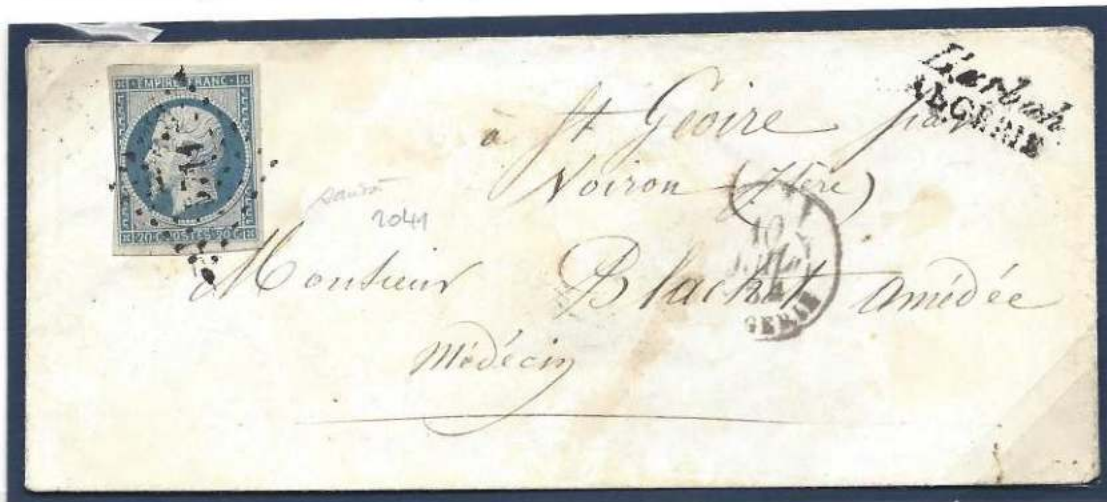 EMPIRE FRANC
20 C. POSTES 20 C.
L'arbah
ALGERIE
à St Geoire par
Voiron (Isère)
2041
10
JUIL.
GERIE
Monsieur Blachet Amédée
Médécin